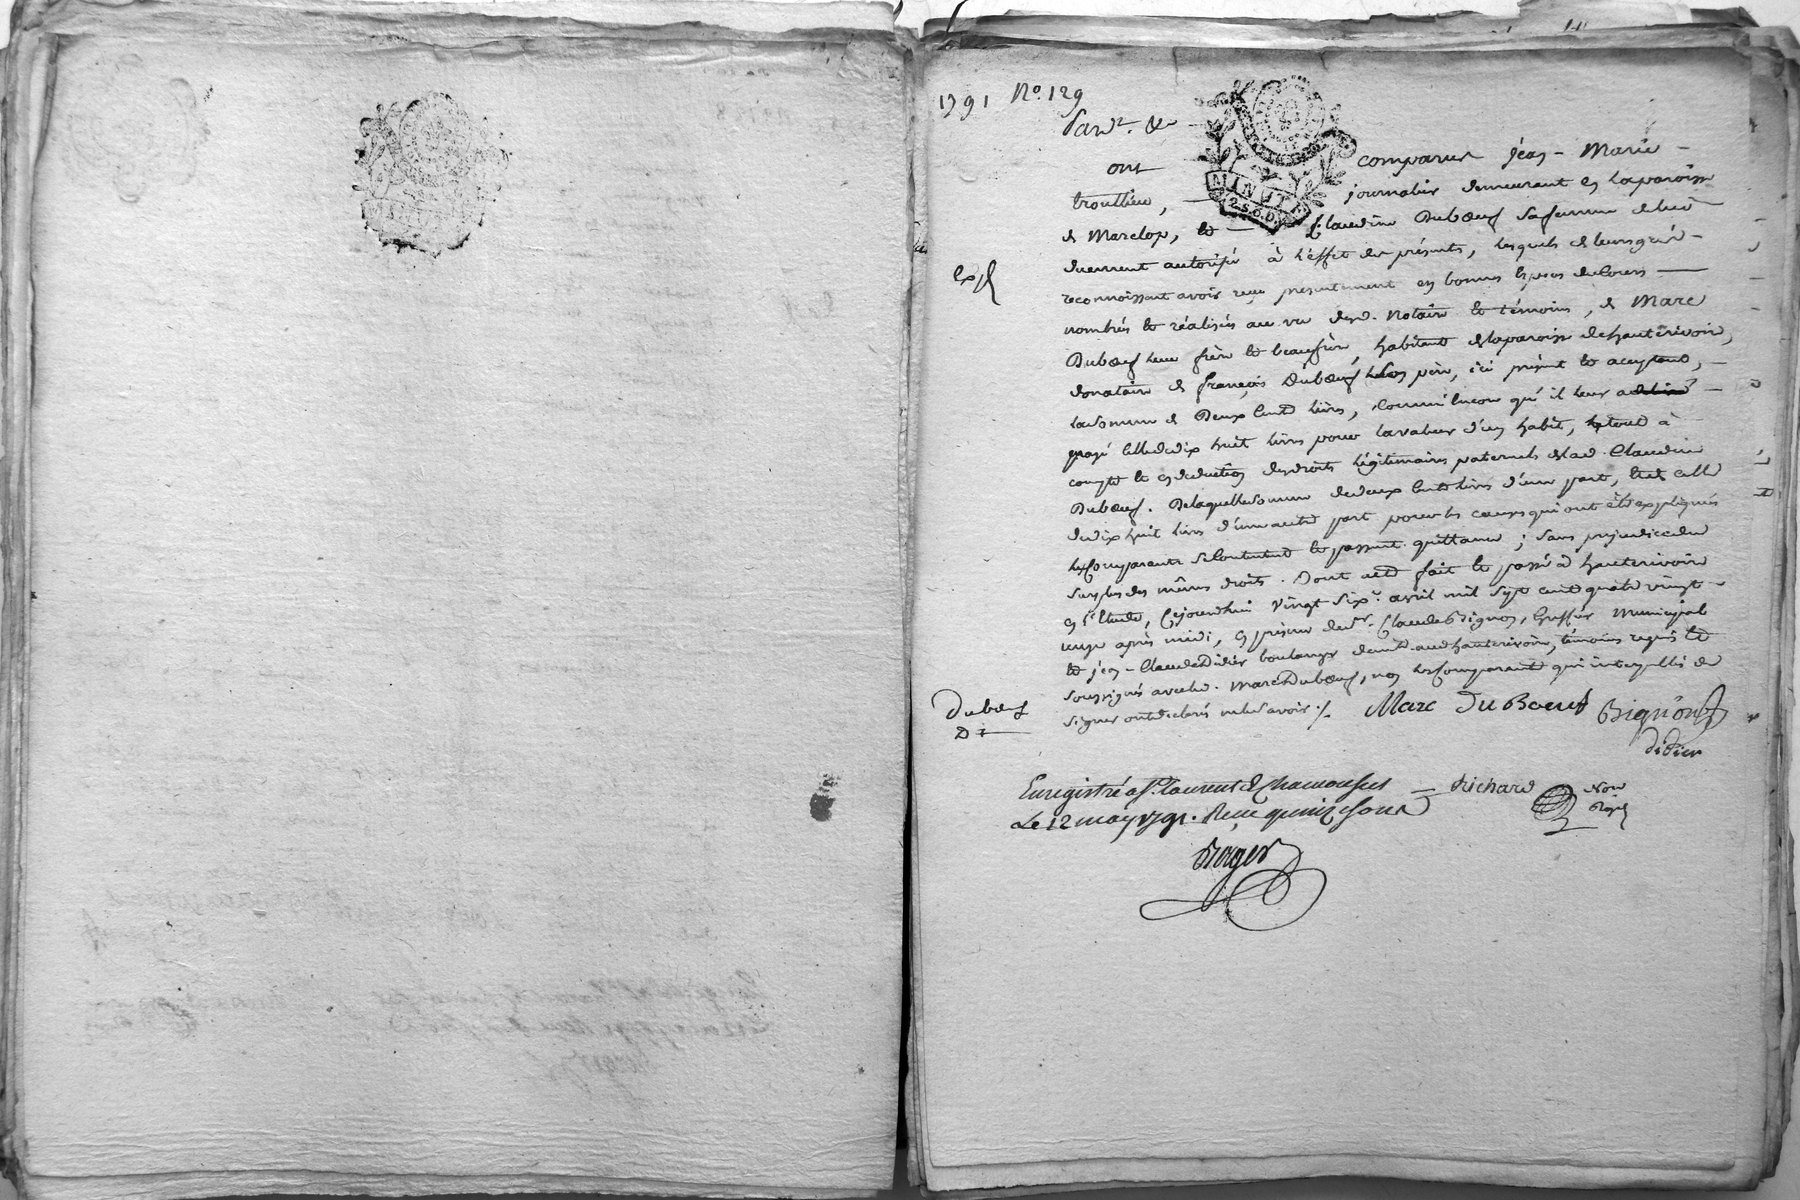 1791 No. 129
Pardt. &a
MINUTE
2.S.6.D.
ont comparus jean-Marie
trouttieu, journalier demeurant en la paroisse
de Marclop, et Claudine Duboeuf sa femme de lui
duement autorisée à l'effet des présents, lesquels de leurs gré
reconnoissent avoir reçu presentement en bonnes espèces de cours
exp
nombrés et réalisés au vu desd. Notaire et témoins, de Marc
Duboeuf leur frère et beaufrère, habitant de la paroisse de hauterivoire,
donataire de françois Duboeuf son père, ici présent et acceptant,
la somme de Deux Cents livres, comm'encore qu'il leur a
payé celle de dix huit livres pour la valeur d'un habit, le tout à
compte et en deduction des droits légitimaires paternels de lad. Claudine
Duboeuf. De laquelle somme de deux Cents livres d'une part, et celle
de dix huit livres d'une autre part pour les causes qui ont été expliqués
les comparants se contentent et passent quittance ; sans prejudice du
surplus des mêmes droits. Dont acte fait et passé à hauterivoire
en l'Etude, Cejourdhui vingt six avril mil sept cent quatre vingt
onze après midi, en présence de sr. Claude Bignon, Greffier Municipal
et jean-Claude Didier boulanger demt. aud. hauterivoire, témoins requis et
soussignés avec led. Marc Duboeuf, non les Comparants qui interpellés de
signer ont déclarés ne le savoir ./.
Duboeuf
Marc Du Boeuf Bignon
didier
Enregistré a St. laurent de Chamousset
Le 12 may 1791. Reçu quinze sous
Richard
Roger